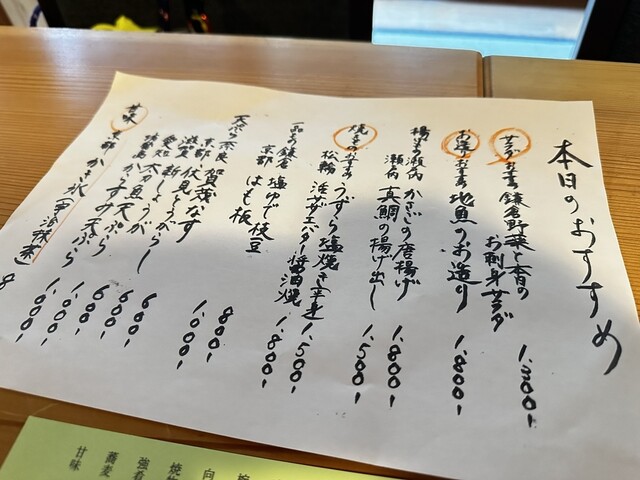 本日のおすすめ
サラダ 鎌倉野菜と本日の
お刺身サラダ 1,300-
お造り 地魚のお造り 1,800-
揚げもの 瀬戸内 かさごの唐揚げ 1,800-
瀬戸内 真鯛の揚げ出し 1,500-
焼きもの うずら塩焼き(半身) 1,500-
松輪 活サザエバター醤油焼 1,800-
一品もの 鎌倉 塩ゆで枝豆 800-
京都 はも板 1,000-
天ぷら 奈良 賀茂なす
京都 伏見とうがらし 600-
滋賀 新しょうが 600-
愛知
大可魚天ぷら 1,000-
天ぷら 1,000-
甘味 京都 かき氷(宇治抹茶)
向
焼物
強肴
蕎麦
甘味